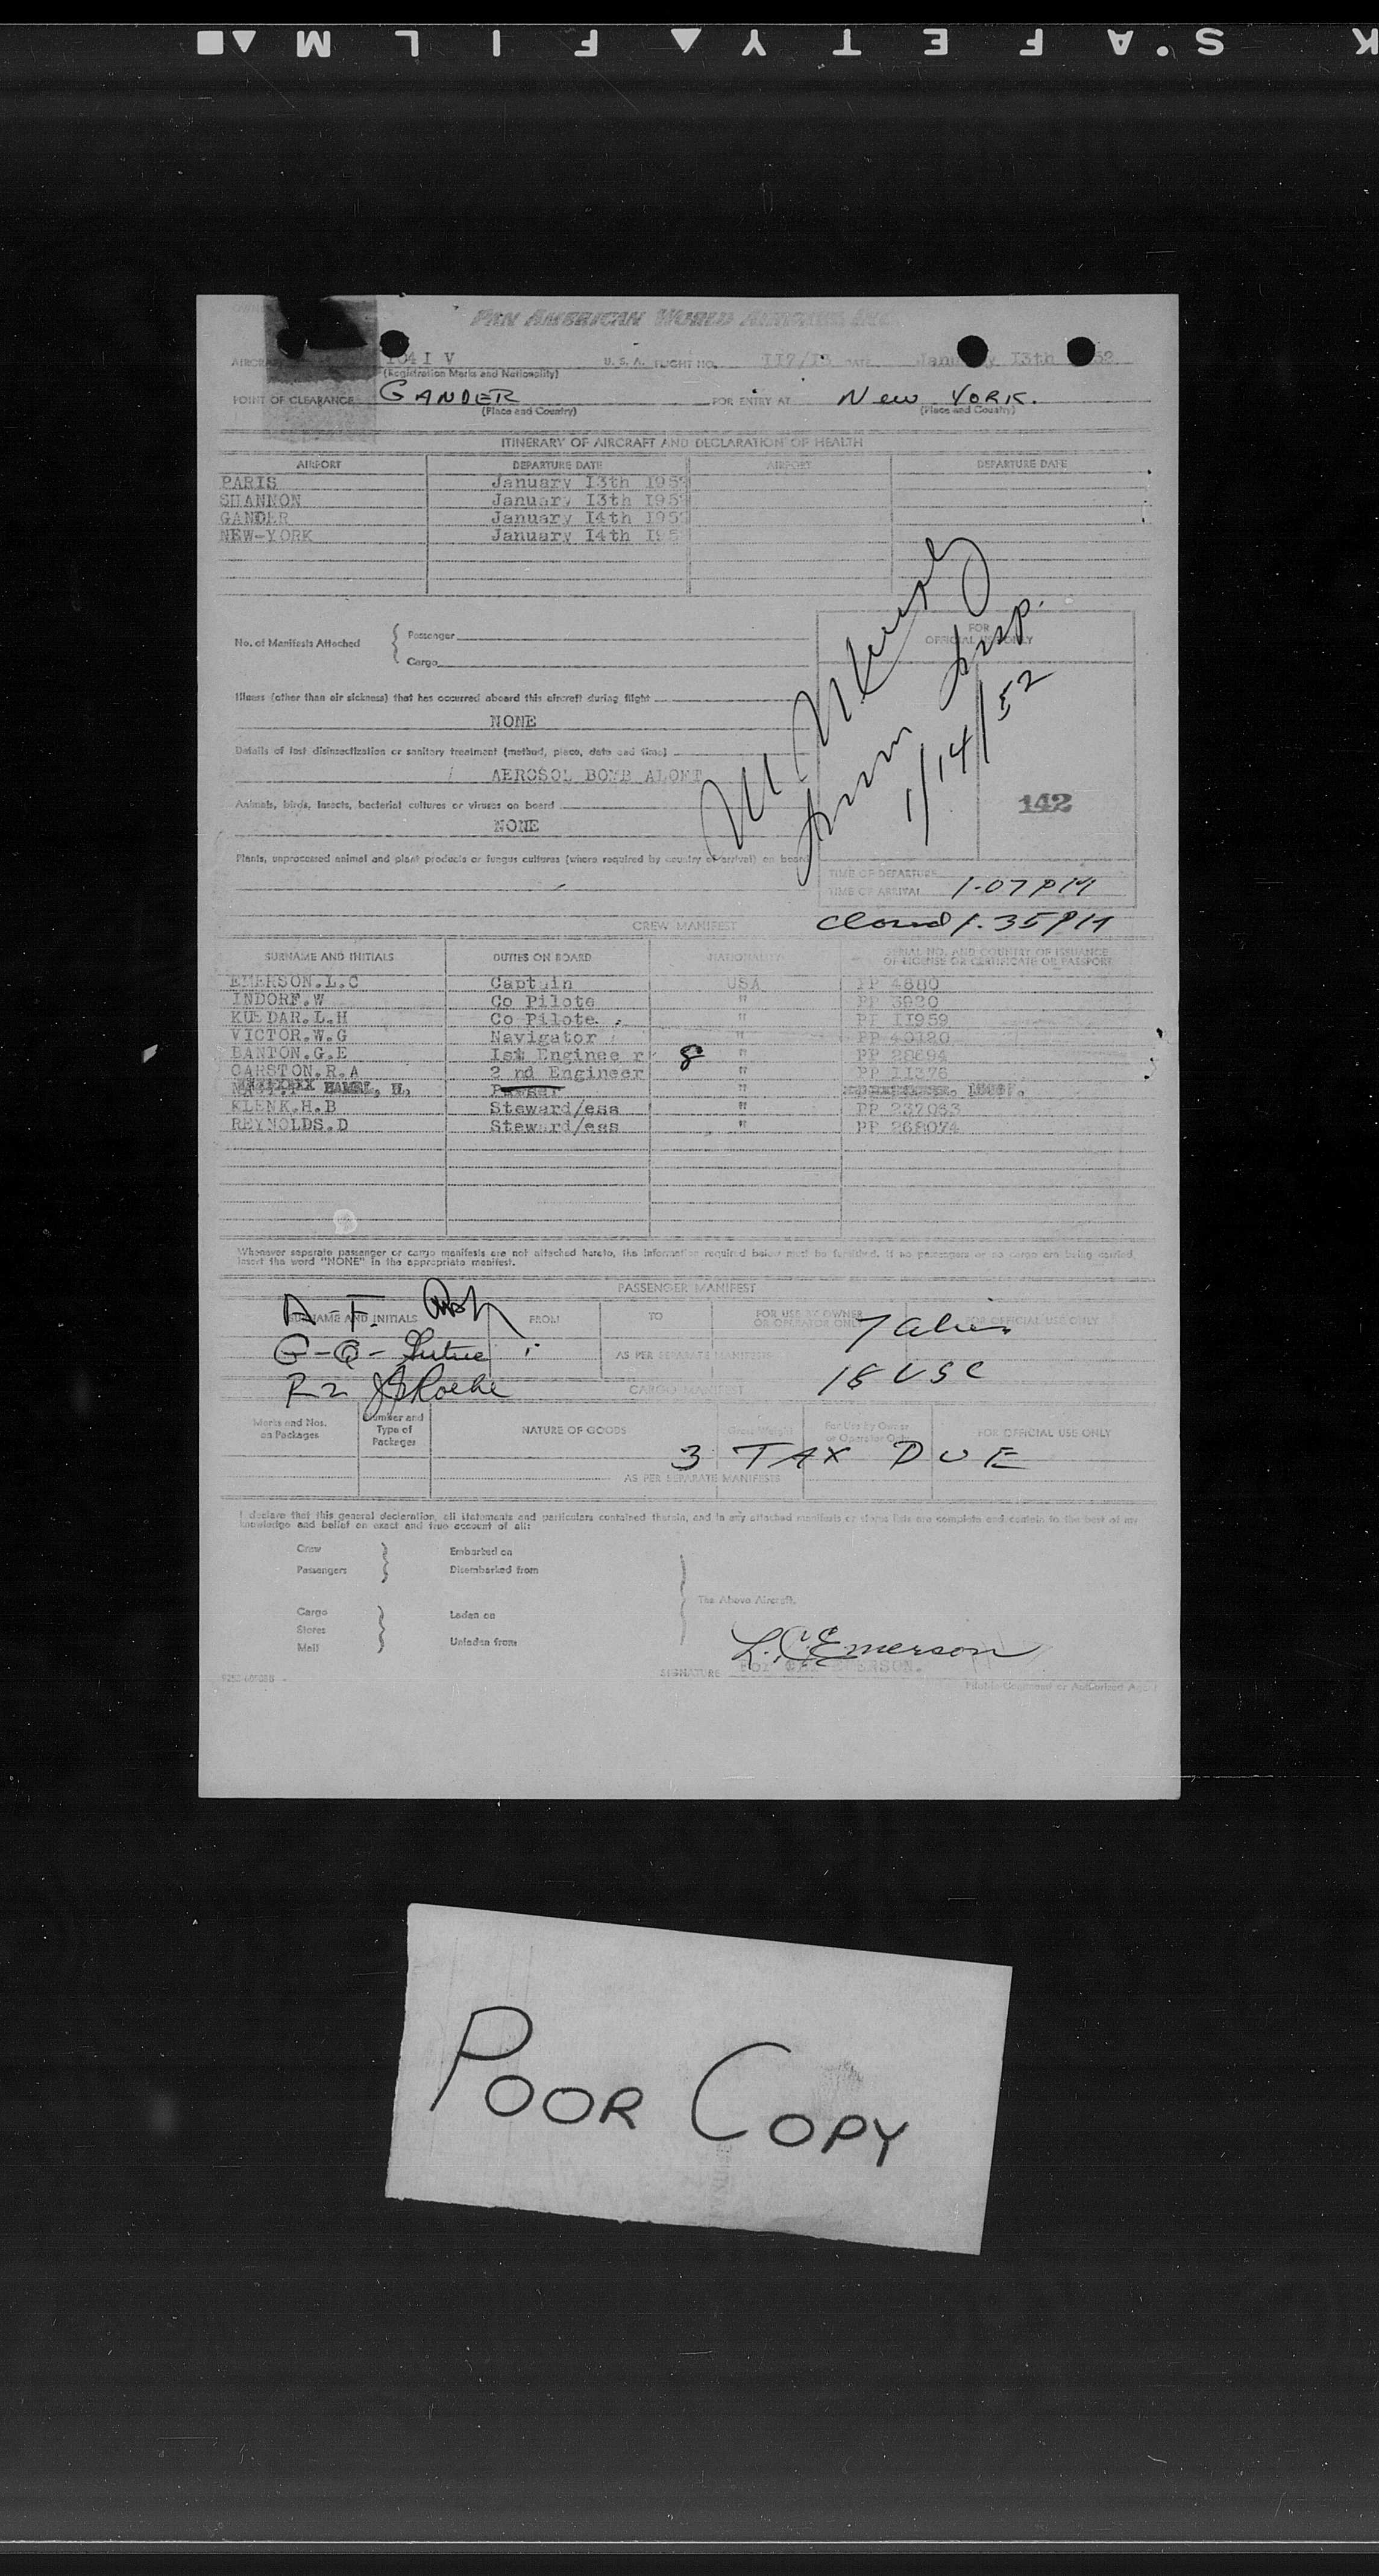 SAFETY FILM
PAN AMERICAN WORLD AIRWAYS INC.
I V U. S. A. FLIGHT NO. 117/13 DATE January 13th 52
(Registration Marks and Nationality)
POINT OF CLEARANCE GANDER FOR ENTRY AT New YORK.
(Place and Country) (Place and Country)
ITINERARY OF AIRCRAFT AND DECLARATION OF HEALTH
AIRPORT DEPARTURE DATE AIRPORT DEPARTURE DATE
PARIS January I3th 195
SHANNON January I3th 195
GANDER January I4th 195
NEW-YORK January I4th
No. of Manifests Attached { Passenger
Cargo
FOR
OFFICIAL USE ONLY
Illness (other than air sickness) that has occurred aboard this aircraft during flight
NONE
Details of last disinsectization or sanitary treatment (method, place, date and time)
AEROSOL BOMB ALOFT
Animals, birds, insects, bacterial cultures or viruses on board
NONE
Plants, unprocessed animal and plant products or fungus cultures (where required by country of arrival) on board
Imm Insp.
1/14/52
142
TIME OF DEPARTURE
TIME OF ARRIVAL 1-07 PM
Closed 1.35 PM
CREW MANIFEST
SURNAME AND INITIALS DUTIES ON BOARD NATIONALITY SERIAL NO. AND COUNTRY OF ISSUANCE
OF LICENSE OR CERTIFICATE OR PASSPORT
EMERSON.L.C Captain USA PP 4880
INDORF.W Co Pilote " PP 3920
KUSDAR.L.H Co Pilote. " PP II959
VICTOR.W.G Navigator " PP 40120
BANTON.G.E Ist Enginee r 8 " PP 28694
CARSTON.R.A 2 nd Engineer " PP II376
HAMEL, H. Purser "
KLENK.H.B Steward/ess " PP 237053
REYNOLDS.D Steward/ess " PP 268074
Whenever separate passenger or cargo manifests are not attached hereto, the information required below must be furnished. If no passengers or no cargo are being carried,
insert the word "NONE" in the appropriate manifest.
PASSENGER MANIFEST
A - F.
SURNAME AND INITIALS FROM TO FOR USE BY OWNER
OR OPERATOR ONLY FOR OFFICIAL USE ONLY
7 alien
G - Q -
AS PER SEPARATE MANIFESTS
18 USC
R-Z J Roche
CARGO MANIFEST
Marks and Nos.
on Packages Number and
Type of
Packages NATURE OF GOODS Gross Weight For Use By Owner
or Operator Only FOR OFFICIAL USE ONLY
3 TAX DUE
AS PER SEPARATE MANIFESTS
I declare that this general declaration, all statements and particulars contained therein, and in any attached manifests or stores lists are complete and contain to the best of my
knowledge and belief an exact and true account of all:
Crew Embarked on
Passengers Disembarked from
The Above Aircraft.
Cargo Laden on
Stores
Mail Unladen from
L.C. Emerson
SIGNATURE For EMERSON.
Pilot-in-Command or Authorized Agent
POOR COPY